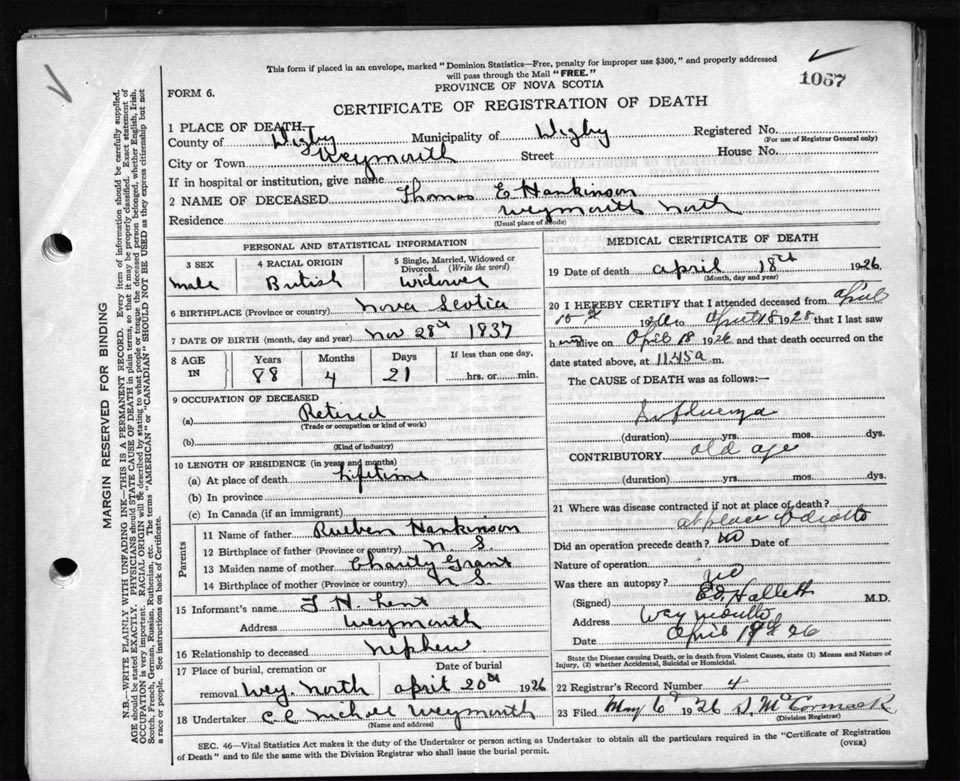 This form if placed in an envelope, marked "Dominion Statistics—Free, penalty for improper use $300," and properly addressed
will pass through the Mail "FREE."
1067
FORM 6.
PROVINCE OF NOVA SCOTIA
CERTIFICATE OF REGISTRATION OF DEATH
1 PLACE OF DEATH—
County of Digby Municipality of Digby Registered No.
(For use of Registrar General only)
City or Town Weymouth Street House No.
If in hospital or institution, give name
2 NAME OF DECEASED Thomas E Hankinson
Residence Weymouth North
(Usual place of abode)
PERSONAL AND STATISTICAL INFORMATION
3 SEX 4 RACIAL ORIGIN 5 Single, Married, Widowed or
Divorced. (Write the word)
male British Widower
6 BIRTHPLACE (Province or country) Nova Scotia
7 DATE OF BIRTH (month, day and year) Nov 28th 1837
8 AGE IN Years Months Days If less than one day,
88 4 21 hrs. or min.
9 OCCUPATION OF DECEASED
(a) Retired
(Trade or occupation or kind of work)
(b)
(Kind of industry)
10 LENGTH OF RESIDENCE (in years and months)
(a) At place of death Lifetime
(b) In province
(c) In Canada (if an immigrant)
Parents
11 Name of father Rueben Hankinson
12 Birthplace of father (Province or country) N S.
13 Maiden name of mother Charity Grant
14 Birthplace of mother (Province or country) N S
15 Informant's name J H. Lent
Address Weymouth
16 Relationship to deceased nephew
17 Place of burial, cremation or Date of burial
removal Wey. North april 20th 1926
18 Undertaker C C Nichol Weymouth
(Name and address)
MEDICAL CERTIFICATE OF DEATH
19 Date of death april 18th 1926
(Month, day and year)
20 I HEREBY CERTIFY that I attended deceased from April
10th 1926 to April 18 1928 that I last saw
him alive on April 18 1926 and that death occurred on the
date stated above, at 11.45 a m.
The CAUSE of DEATH was as follows:—
Influenza
(duration) yrs. mos. dys.
CONTRIBUTORY old age
(duration) yrs. mos. dys.
21 Where was disease contracted if not at place of death?
at place of death
Did an operation precede death? no Date of
Nature of operation
Was there an autopsy? no
(Signed) E D. Hallett M.D.
Address Weymouth
Date April 19th 26
State the Disease causing Death, or in death from Violent Causes, state (1) Means and Nature of
Injury, (2) whether Accidental, Suicidal or Homicidal.
22 Registrar's Record Number 4
23 Filed May 6th 1926 D. McCormack
(Division Registrar)
SEC. 46—Vital Statistics Act makes it the duty of the Undertaker or person acting as Undertaker to obtain all the particulars required in the "Certificate of Registration
of Death" and to file the same with the Division Registrar who shall issue the burial permit.
(OVER)
MARGIN RESERVED FOR BINDING
N.B.—WRITE PLAINLY WITH UNFADING INK—THIS IS A PERMANENT RECORD. Every item of information should be carefully supplied.
AGE should be stated EXACTLY. PHYSICIANS should STATE CAUSE OF DEATH in plain terms, so that it may be properly classified. Exact statement of
OCCUPATION is very important. RACIAL ORIGIN will be described by stating to what people or tongue the deceased person belonged, whether English, Irish,
Scotch, French, German, Russian, Ruthenian, etc. The terms "AMERICAN" or "CANADIAN" SHOULD NOT BE USED as they express citizenship but not
a race or people. See instructions on back of Certificate.